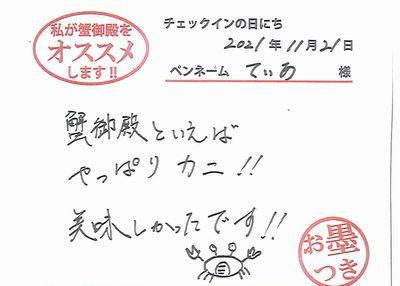 私が蟹御殿を
オススメ
します!!
チェックインの日にち
2021年11月21日
ペンネーム てぃあ 様
蟹御殿といえば
やっぱりカニ!!
美味しかったです!!
お墨
つき